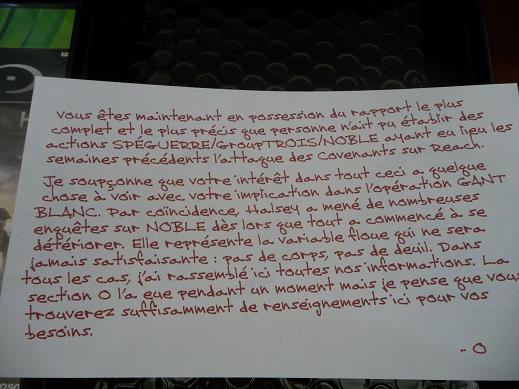 Vous êtes maintenant en possession du rapport le plus
complet et le plus précis que personne n'ait pu établir des
actions SPÉGUERRE/GroupTROIS/NOBLE ayant eu lieu les
semaines précédents l'attaque des Covenants sur Reach.
Je soupçonne que votre intérêt dans tout ceci a quelque
chose à voir avec votre implication dans l'opération GANT
BLANC. Par coïncidence, Halsey a mené de nombreuses
enquêtes sur NOBLE dès lors que tout a commencé à se
détériorer. Elle représente la variable floue qui ne sera
jamais satisfaisante : pas de corps, pas de deuil. Dans
tous les cas, j'ai rassemblé ici toutes nos informations. La
section O l'a eue pendant un moment mais je pense que vous
trouverez suffisamment de renseignements ici pour vos
besoins.
- O